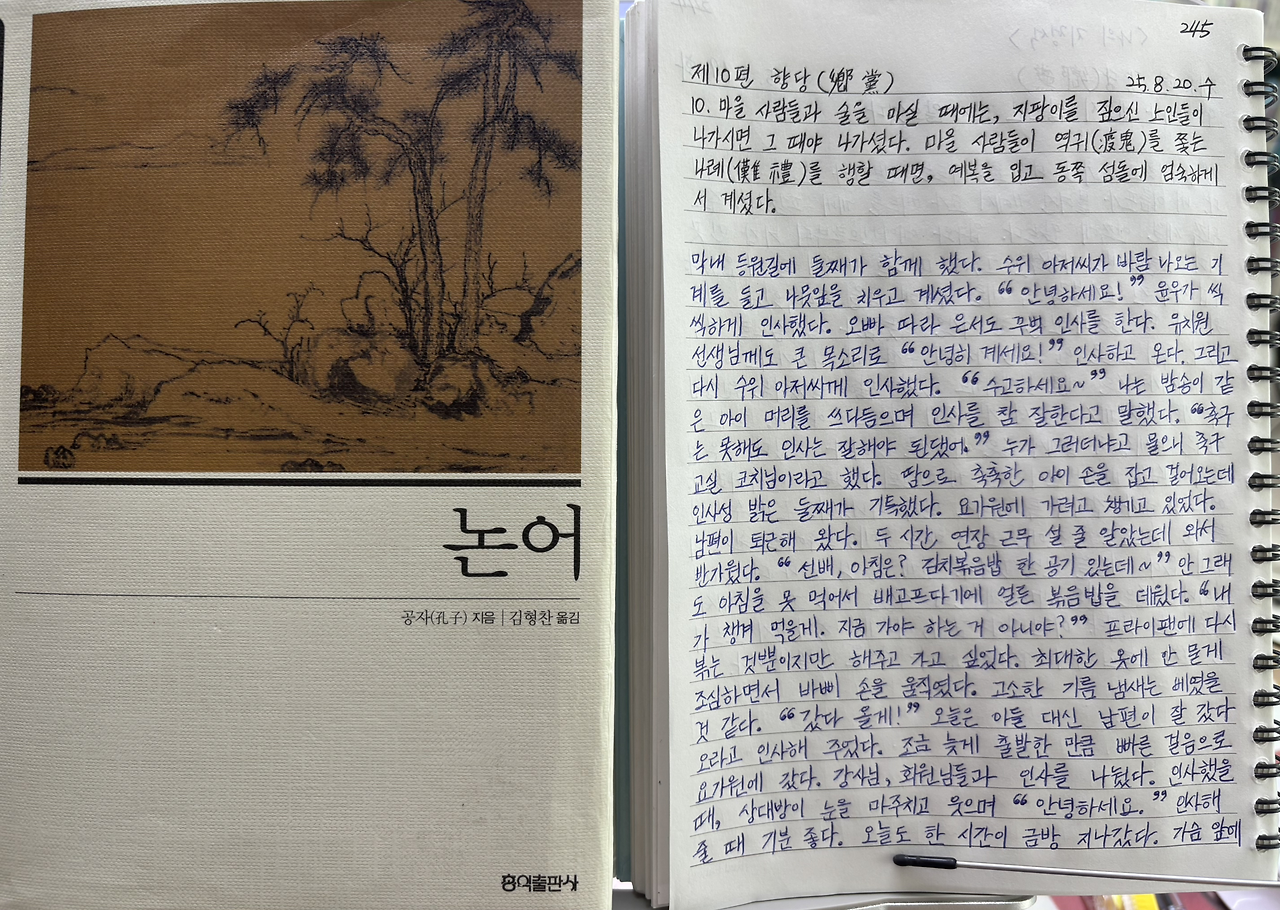 논어
공자(孔子) 지음 | 김형찬 옮김
홍익출판사
245
제10편 향당(鄕黨) 25.8.20.수
10. 마을 사람들과 술을 마실 때에는, 지팡이를 짚으신 노인들이
나가시면 그 때야 나가셨다. 마을 사람들이 역귀(疫鬼)를 쫓는
나례(儺禮)를 행할 때면, 예복을 입고 동쪽 섬돌에 엄숙하게
서 계셨다.
막내 등원길에 둘째가 함께 했다. 수위 아저씨가 바람 나오는 기
계를 들고 나뭇잎을 치우고 계셨다. “안녕하세요!” 윤우가 씩
씩하게 인사했다. 오빠 따라 은서도 꾸벅 인사를 한다. 유치원
선생님께도 큰 목소리로 “안녕히 계세요!” 인사하고 온다. 그리고
다시 수위 아저씨께 인사했다. “수고하세요~” 나는 밤송이 같
은 아이 머리를 쓰다듬으며 인사를 참 잘한다고 말했다. “축구
는 못해도 인사는 잘해야 된댔어.” 누가 그러더냐고 물으니 축구
교실 코치님이라고 했다. 땀으로 축축한 아이 손을 잡고 걸어오는데
인사성 밝은 둘째가 기특했다. 요가원에 가려고 챙기고 있었다.
남편이 퇴근해 왔다. 두 시간 연장 근무 설 줄 알았는데 와서
반가웠다. “선배, 아침은? 김치볶음밥 한 공기 있는데~” 안 그래
도 아침을 못 먹어서 배고프다기에 얼른 볶음밥을 데웠다. “내
가 챙겨 먹을게. 지금 가야 하는 거 아니야?” 프라이팬에 다시
볶는 것뿐이지만 해주고 가고 싶었다. 최대한 옷에 안 묻게
조심하면서 바삐 손을 움직였다. 고소한 기름 냄새는 베였을
것 같다. “갔다 올게!” 오늘은 아들 대신 남편이 잘 갔다
오라고 인사해 주었다. 조금 늦게 출발한 만큼 빠른 걸음으로
요가원에 갔다. 강사님, 회원님들과 인사를 나눴다. 인사했을
때, 상대방이 눈을 마주치고 웃으며 “안녕하세요.” 인사해
줄 때 기분 좋다. 오늘도 한 시간이 금방 지나갔다. 가슴 앞에